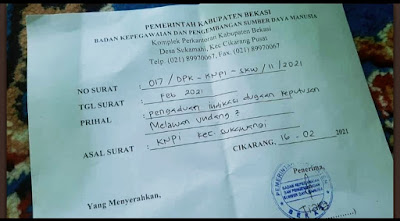 PEMERINTAH KABUPATEN BEKASI
BADAN KEPEGAWAIAN DAN PENGEMBANGAN SUMBER DAYA MANUSIA
Komplek Perkantoran Kabupaten Bekasi
Desa Sukamahi, Kec Cikarang Pusat
Telp. (021) 89970067, Fax. (021) 89970067
NO SURAT : 017 / DPK - KNPI - SKW / 11 / 2021
TGL SURAT : Feb 2021
PRIHAL : pengaduan indikasi dugaan keputusan
Melawan undang 2
ASAL SURAT : KNPI Kec Sukawangi
CIKARANG, 16 - 02 2021
Penerima,
BADAN KEPEGAWAIAN DAN
PENGEMBANGAN
SUMBER DAYA MANUSIA
BEKASI
Yang Menyerahkan,